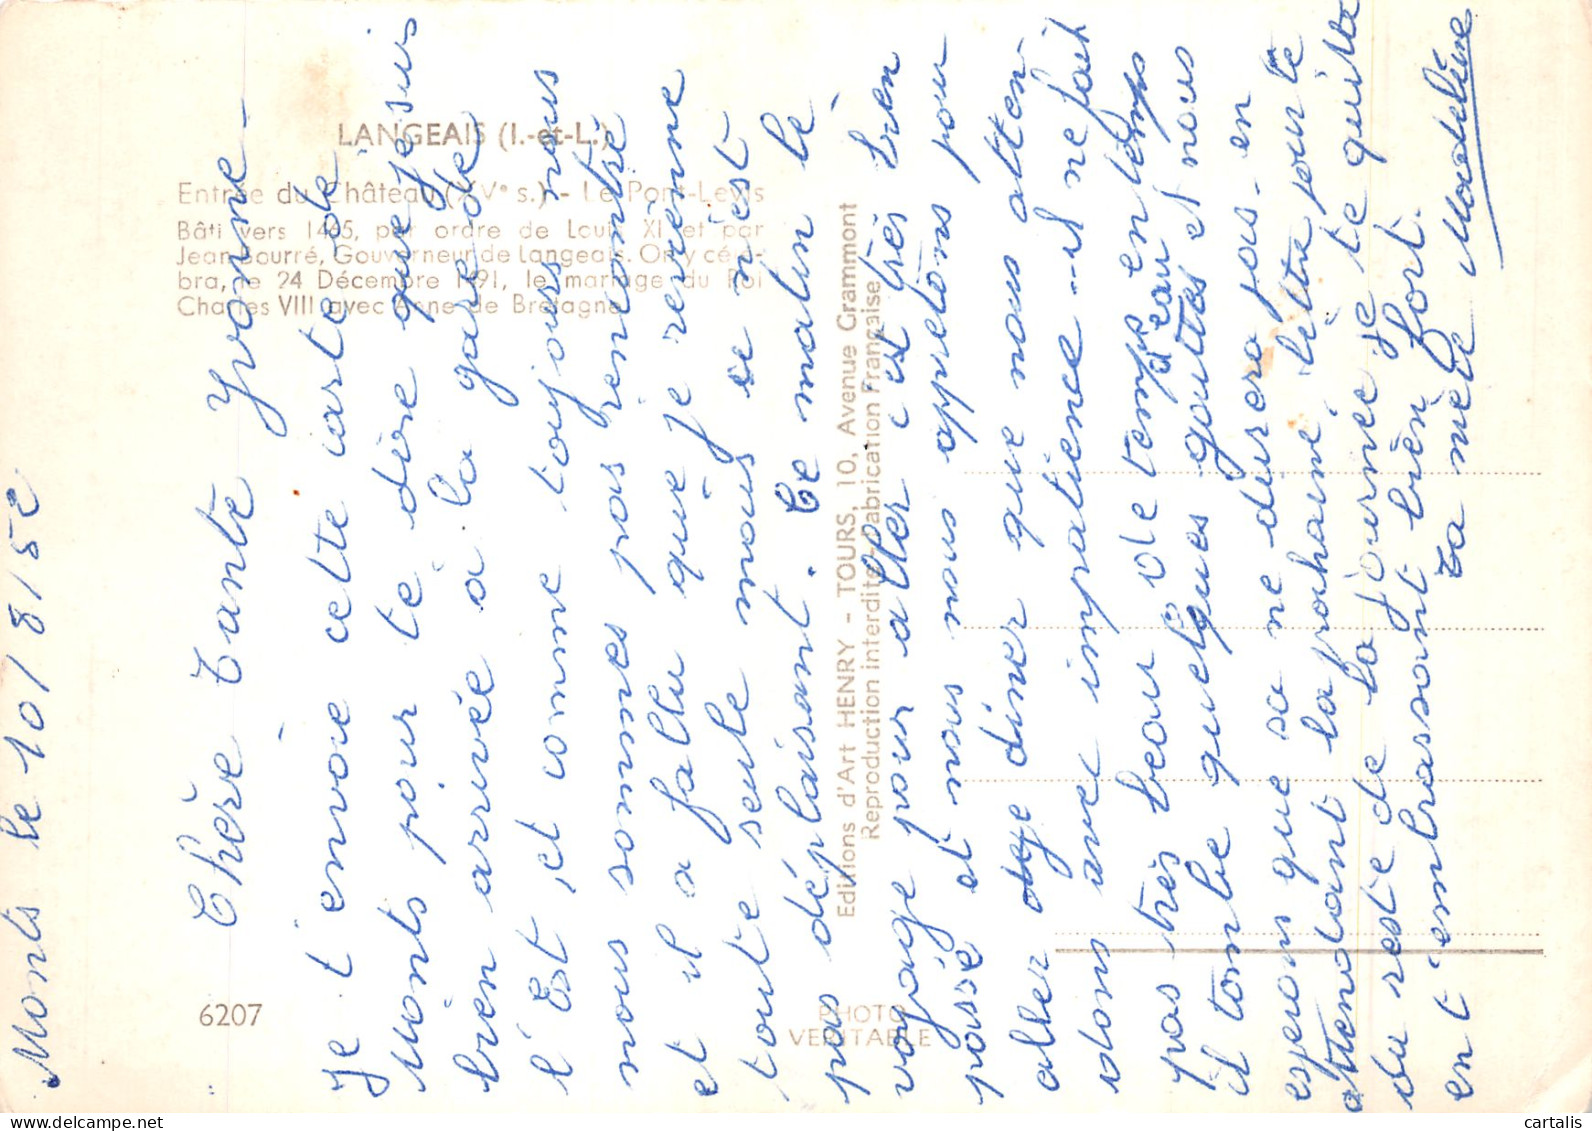 LANGEAIS (I.-et-L.)
Entrée du Château (XVe s.) - Le Pont-Levis
Bâti vers 1465, par ordre de Louis XI et par
Jean Bourré, Gouverneur de Langeais. On y célé-
bra, le 24 Décembre 1491, le mariage du Roi
Charles VIII avec Anne de Bretagne
6207
PHOTO
VERITABLE
Editions d'Art HENRY - TOURS, 10, Avenue Grammont
Reproduction interdite - Fabrication Française
Monts le 10/8/52
Chère Tante Yvonne -
Je t'envoie cette carte de
Monts pour te dire que je suis
bien arrivée à la gare de
l'Est, et comme toujours nous
nous sommes pas rencontré
et il a fallu que je revienne
toute seule mais ce n'est
pas déplaisant. Le matin le
voyage pour aller c'est très bien
passé et nous nous appretons pour
aller diner que nous atten-
dons avec impatience - il ne fait
pas très beau de temps en temps
il tombe quelques gouttes d'eau et nous
esperons que sa ne durera pas - en
attendant la prochaine lettre pour le
du reste de la journée je te quitte
en t'embrassant bien fort.
ta nièce Madeleine